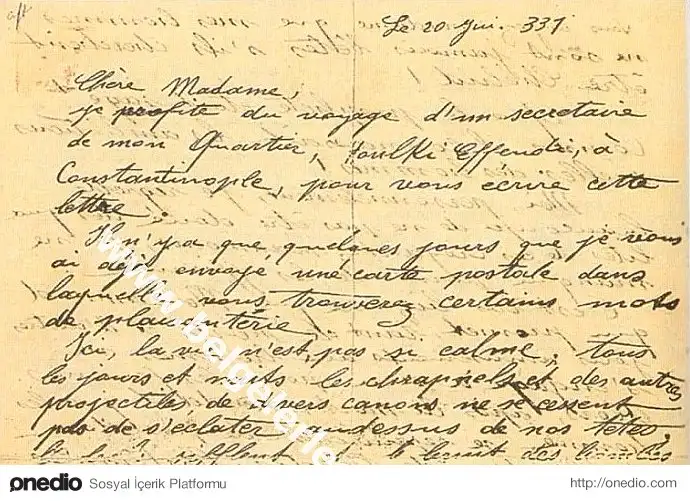 Le 20 Jui. 331
Chère Madame,
je profite du voyage d'un secretaire
de mon Quartier, Houlki Effendi, à
Constantinople, pour vous écrire cette
lettre.
Il n'y a que quelques jours que je vous
ai déjà envoyé une carte postale dans
laquelle vous trouverez certains mots
de plaisantérie.
Ici, la vie n'est pas si calme, tous
les jours et nuits les chrapnels et des autres
projectiles de divers canons ne se cessent
pas de s'éclater audessus de nos têtes,
et le bruit des bombes
www.belgeler
onedio Sosyal İçerik Platformu
http://onedio.com